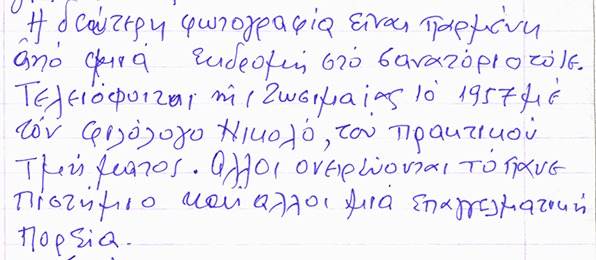 Η δεύτερη φωτογραφία είναι παρμένη
από μιά εκδρομή στό σανατόριο τότε.
Τελειόφοιται τής Ζωσιμαίας τό 1957 μέ
τόν φιλόλογο Νικολό, τού πρακτικού
Τμήματος. Άλλοι ονειρεύονται τό πανε
πιστήμιο καί άλλοι μιά επαγγελματική
πορεία.